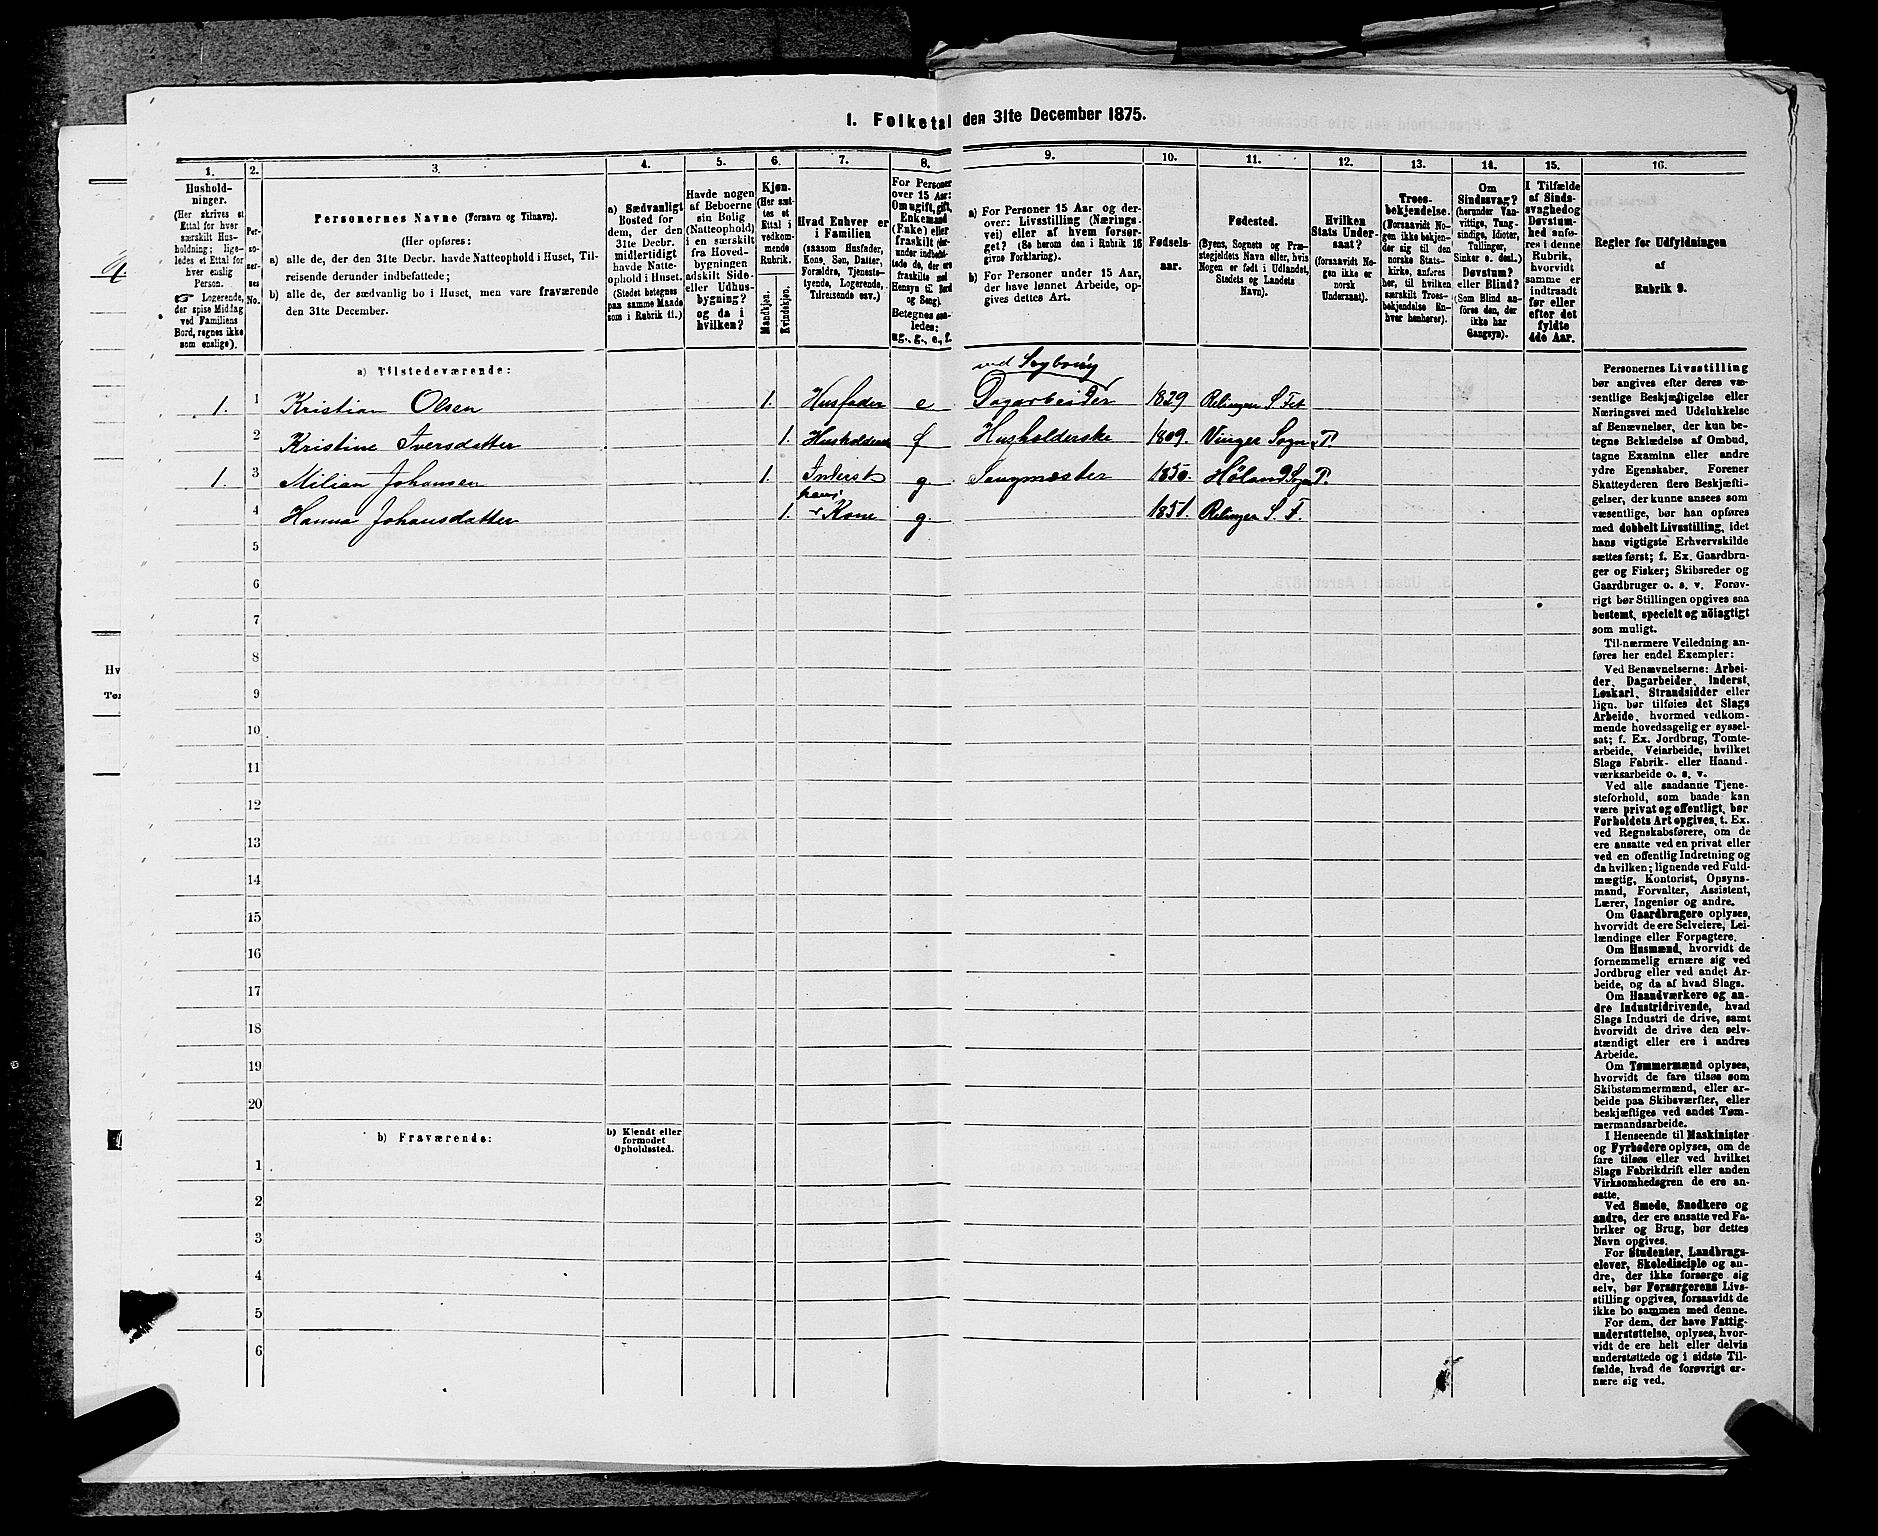 1. Folketal den 31te December 1875.
1. 2. 3. 4. 5. 6. 7. 8. 9. 10. 11. 12. 13. 14. 15. 16.
Hushold-
ninger.
(Her skrives et
Ettal for hver
særskilt Hus-
holdning; lige-
ledes et Ettal for
hver enslig
Person.
☞ Logerende,
der spise Middag
ved Familiens
Bord, regnes ikke
som enslige).
Per-
so-
ner-
nes
No.
Personernes Navne (Fornavn og Tilnavn).
(Her opføres:
a) alle de, der den 31te Decbr. havde Natteophold i Huset, Til-
reisende derunder indbefattede;
b) alle de, der sædvanlig bo i Huset, men vare fraværende
den 31te December.
a) Sædvanligt
Bosted for
dem, der den
31te Decbr.
midlertidigt
havde Natte-
ophold i Huset.
(Stedet betegnes
paa samme Maade
som i Rubrik 11.)
Havde nogen
af Beboerne
sin Bolig
(Natteophold)
i en særskilt
fra Hoved-
bygningen
adskilt Side-
eller Udhus-
bygning?
og da i
hvilken?
Kjøn.
(Her sæt-
tes et
Ettal i
vedkom-
mende
Rubrik.
Mandkjøn.
Kvindekjøn.
Hvad Enhver er
i Familien
(saasom Husfader,
Kone, Søn, Datter,
Forældre, Tjeneste-
tyende, Logerende,
Tilreisende osv.)
For Personer
over 15 Aar:
Om ugift, gift,
Enkemand
(Enke) eller
fraskilt (der-
under indbefat-
tede de, der ere
fraskilte med
Hensyn til Bord
og Seng).
Betegnes saa-
ledes:
ug., g., e., f.
a) For Personer 15 Aar og der-
over: Livsstilling (Nærings-
vei) eller af hvem forsør-
get? (Se herom den i Rubrik 16
givne Forklaring).
b) For Personer under 15 Aar,
der have lønnet Arbeide, op-
gives dettes Art.
Fødsels-
aar.
Fødested.
(Byens, Sognets og Præ-
stegjeldets Navn eller, hvis
Nogen er født i Udlandet,
Stedets og Landets
Navn).
Hvilken
Stats Under-
saat?
(forsaavidt No-
gen ikke er
norsk
Undersaat).
Troes-
bekjendelse.
(Forsaavidt No-
gen ikke bekjen-
der sig til den
norske Stats-
kirke, anføres
her, til hvilken
særskilt Troes-
bekjendelse En-
hver henhører).
Om
Sindssvag?
(herunder Van-
vittige, Tung-
sindige, Idioter,
Tullinger,
Sinker o. desl.)
Døvstum?
eller Blind?
(Som Blind an-
føres den, der
ikke har
Gangsyn).
I Tilfælde
af Sinds-
svaghed og
Døvstum-
hed anfø-
res i denne
Rubrik,
hvorvidt
samme er
indtraadt
før eller
efter det
fyldte
4de Aar.
Regler for Udfyldningen
af
Rubrik 9.
a) Tilstedeværende:
ved
1. 1 Kristian Olsen 1. Husfader e Dagarbeider 1829 Relingen S. Fet
2 Kristine Iversdatter 1. f Husholderske 1809 Vinger Sogn P.
1. 3 Milian Johansen 1. Inderst g Saugmester 1850. Høland Sogn P.
hans
4 Hanna Johansdatter 1. Kone g. 1851. Relingen S. F.
5
6
7
8
9
10
11
12
13
14
15
16
17
18
19
20
b) Fraværende:
b) Kjendt eller
formodet
Opholdssted.
1
2
3
4
5
6
Personernes Livsstilling
bør angives efter deres væ-
sentlige Beskjæftigelse eller
Næringsvei med Udelukkelse
af Benævnelser, der kun be-
tegne Beklædelse af Ombud,
tagne Examina eller andre
ydre Egenskaber. Forener
Skatteyderen flere Beskjæfti-
gelser, der kunne ansees som
væsentlige, bør han opføres
med dobbelt Livsstilling, idet
hans vigtigste Erhvervskilde
sættes først; f. Ex. Gaardbru-
ger og Fisker; Skibsreder og
Gaardbruger o. s. v. Forøv-
rigt bør Stillingen opgives saa
bestemt, specielt og nöiagtigt
som muligt.
Til nærmere Veiledning an-
føres her endel Exempler:
Ved Benævnelserne: Arbei-
der, Dagarbeider, Inderst,
Løskarl, Strandsidder eller
lign. bør tilføies det Slags
Arbeide, hvormed vedkom-
mende hovedsagelig er syssel-
sat; f. Ex. Jordbrug, Tomte-
arbeide, Veiarbeide, hvilket
Slags Fabrik- eller Haand-
værksarbeide o. s. v.
Ved alle saadanne Tjene-
steforhold, som baade kan
være privat og offentligt, bør
Forholdets Art opgives, t. Ex.
ved Regnskabsførere, om de
ere ansatte ved en privat eller
ved en offentlig Indretning og
da hvilken; lignende ved Fuld-
mægtig, Kontorist, Opsyns-
mand, Forvalter, Assistent,
Lærer, Ingeniør og andre.
Om Gaardbrugere oplyses,
hvorvidt de ere Selveiere, Lei-
lændinge eller Forpagtere.
Om Husmænd, hvorvidt de
fornemmelig ernære sig ved
Jordbrug eller ved andet Ar-
beide, og da af hvad Slags.
Om Haandværkere og an-
dre Industridrivende, hvad
Slags Industri de drive, samt
hvorvidt de drive den selv-
stændigt eller ere i andres
Arbeide.
Om Tømmermænd oplyses,
hvorvidt de fare tilsøs som
Skibstømmermænd, eller ar-
beide paa Skibsværfter, eller
beskjæftiges ved andet Tøm-
mermandsarbeide.
I Henseende til Maskinister
og Fyrbødere oplyses, om de
fare tilsøs eller ved hvilket
Slags Fabrikdrift eller anden
Virksomhedsgren de ere an-
satte.
Ved Smede, Snedkere og
andre, der ere ansatte ved Fa-
briker og Brug, bør dettes
Navn opgives.
For Studenter, Landbrugs-
elever, Skoledisciple og an-
dre, der ikke forsørge sig
selv, bør Forsørgerens Livs-
stilling opgives, forsaavidt de
ikke bo sammen med denne.
For dem, der have Fattig-
understøttelse, oplyses, hvor-
vidt de ere helt eller delvis
understøttede og i sidste Til-
fælde, hvad de forøvrigt er-
nære sig ved.